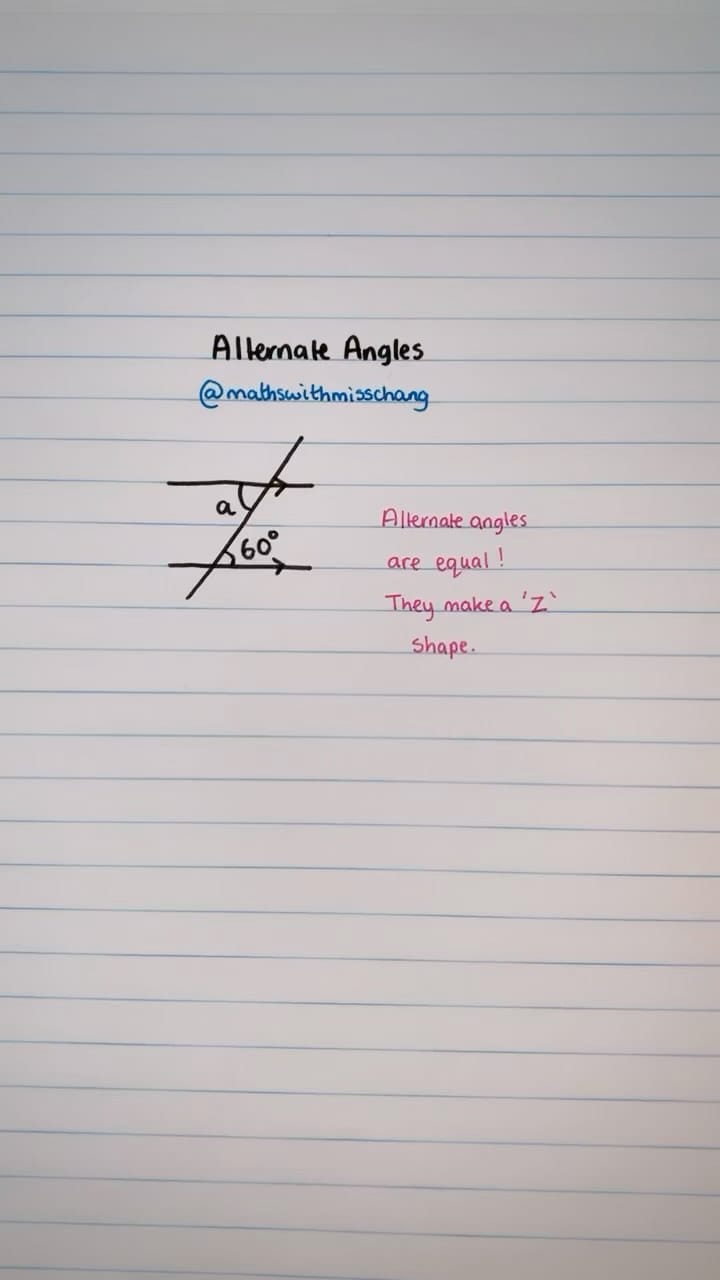 Alternate Angles
@mathswithmisschang
a
60°
Alternate angles
are equal!
They make a 'Z`
shape.